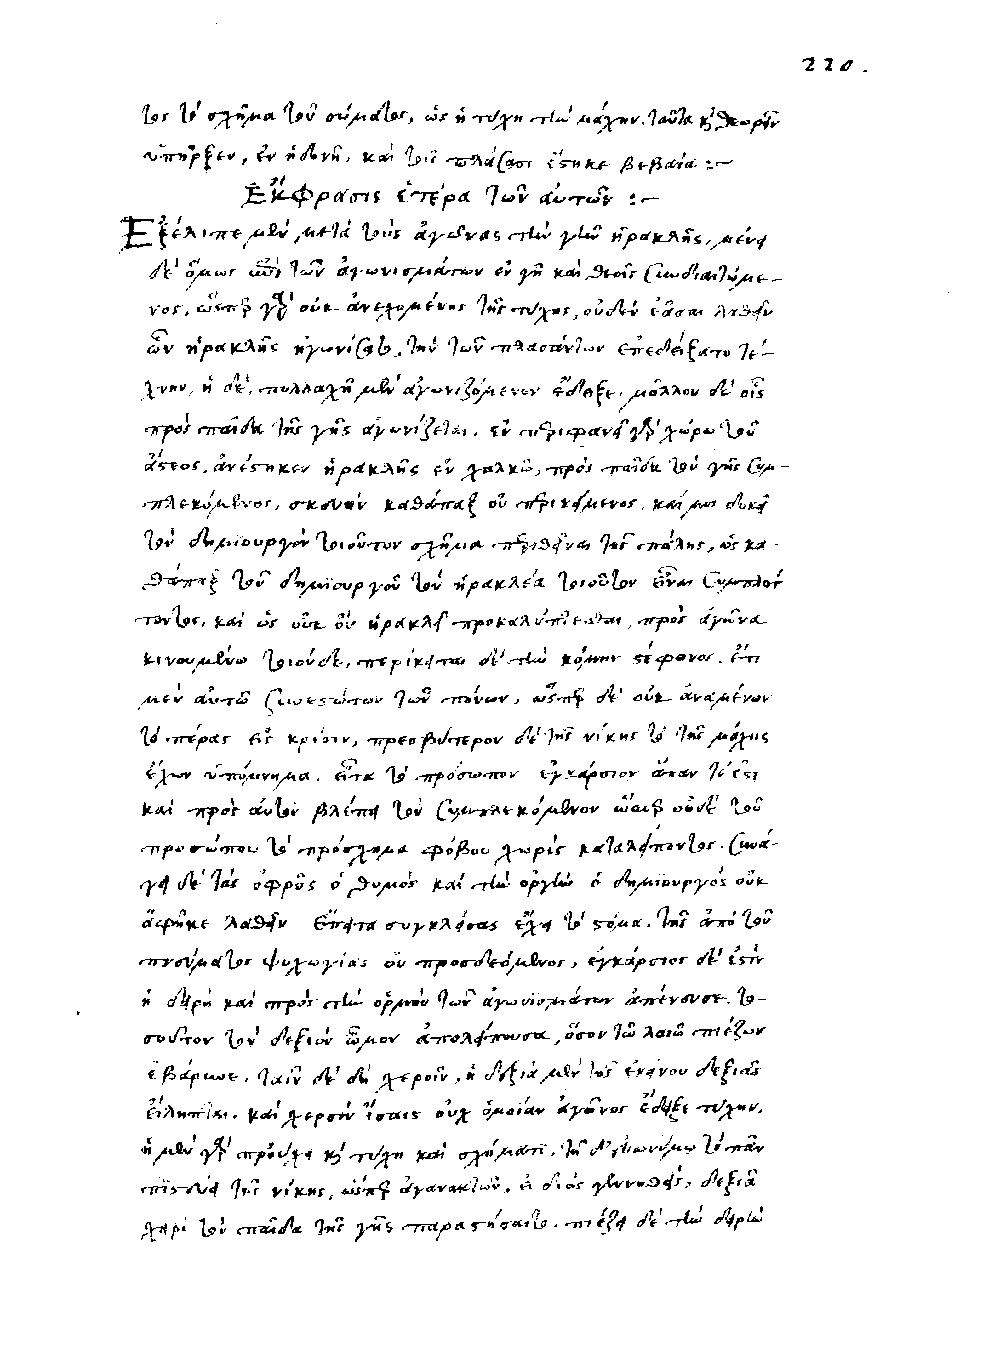 220.
τος τὸ σχῆμα τοῦ σώματος, ὡς ἡ τύχη τὴν μάχην. ταῦτα καὶ θεωρεῖν
ὑπῆρξεν, ἐν ἡδονῇ, καὶ τοῖς πλάσασι ἕστηκε βεβαία :~
Ἔκφρασις ἑτέρα τῶν αὐτῶν :~
Ἐξέλιπε μὲν μετὰ τοὺς ἀγῶνας τὴν γῆν ἡρακλῆς, μένει
δὲ ὅμως ἐπὶ τῶν ἀγωνισμάτων ἐν γῇ καὶ θεοῖς συνδιαιτώμε-
νος, ὥσπερ γὰρ οὐκ ἀνεχομένης τῆς τύχης, οὐδὲν ἐᾶσαι λαθεῖν
ὧν ἡρακλῆς ἠγωνίσατο, τὴν τῶν πλασάντων ἐπεδείξατο τέ-
χνην, ἡ δὲ, πολλαχῆ μὲν ἀγωνιζόμενον ἔδειξε, μᾶλλον δὲ οἷς
πρὸς παῖδα τῆς γῆς ἀγωνίζεται. ἐν περιφανεῖ γὰρ χώρω τοῦ
ἄστεος, ἀνέστηκεν ἡρακλῆς ἐν χαλκῶ, πρὸς παῖδα τὸν γῆς συμ-
πλεκόμενος, σκευὴν καθάπαξ οὐ περικείμενος, καί μοι δοκεῖ
τὸν δημιουργὸν τοιοῦτον σχῆμα περιθεῖναι τῆς πάλης, ὡς κα-
θάπαξ τοῦ δημιουργοῦ τὸν ἡρακλέα τοιοῦτον εἶναι συμπλάτ-
τοντος, καὶ ὡς οὐκ ὂν ἡρακλεῖ προκαλύπτεσθαι, πρὸς ἀγῶνα
κινουμένω τοιοῦδε, περίκειται δὲ τὴν κόμην στέφανος. ἔτι
μὲν αὐτῶ συνεστώτων τῶν πόνων, ὥσπερ δὲ οὐκ ἀναμένων
τὸ πέρας εἰς κρίσιν, πρεσβύτερον δὲ τῆς νίκης τὸ τῆς μάχης
ἔχων ὑπόμνημα. εἶτα τὸ πρόσωπον ἐγκάρσιον ἅπαν τέ ἐστι
καὶ πρὸς αὐτὸν βλέπει τὸν συμπλεκόμενον ὥσπερ οὐδὲ τοῦ
προσώπου τὸ πρόσχημα φόβου χωρὶς καταλείποντος. συνά-
γει δὲ τὰς ὀφρῦς ὁ θυμὸς καὶ τὴν ὀργὴν ὁ δημιουργὸς οὐκ
ἀφῆκε λαθεῖν ἔπειτα συγκλείσας ἔχει τὸ στόμα, τῆς ἀπὸ τοῦ
πνεύματος ψυχωγίας οὐ προσδεόμενος, ἐγκάρσιος δέ ἐστιν
ἡ δειρὴ καὶ πρὸς τὴν ὁρμὴν τῶν ἀγωνισμάτων ἀπένευσε, το-
σοῦτον τὸν δεξιὸν ὦμον ἀπολείπουσα, ὅσον τῶ λαιῶ πιέζων
ἐβάρυνε, ταῖν δὲ δὴ χεροῖν, ἡ δεξιὰ μὲν τῆς ἐκείνου δεξιᾶς
εἴληπται, καὶ χερσὶν ἴσαις οὐχ ὁμοίαν ἀγῶνος ἔδειξε τύχην,
ἡ μὲν γὰρ προύχει καὶ τύχη καὶ σχήματι, τῇ δ᾽ εὐωνύμω τὸ πᾶν
πιστεύει τῆς νίκης, ὥσπερ ἀγανακτῶν, εἰ διὸς γεννηθεὶς, δεξιᾷ
χειρὶ τὸν παῖδα τῆς γῆς παραστήσαιτο. πιέζει δὲ τὴν δειρὴν